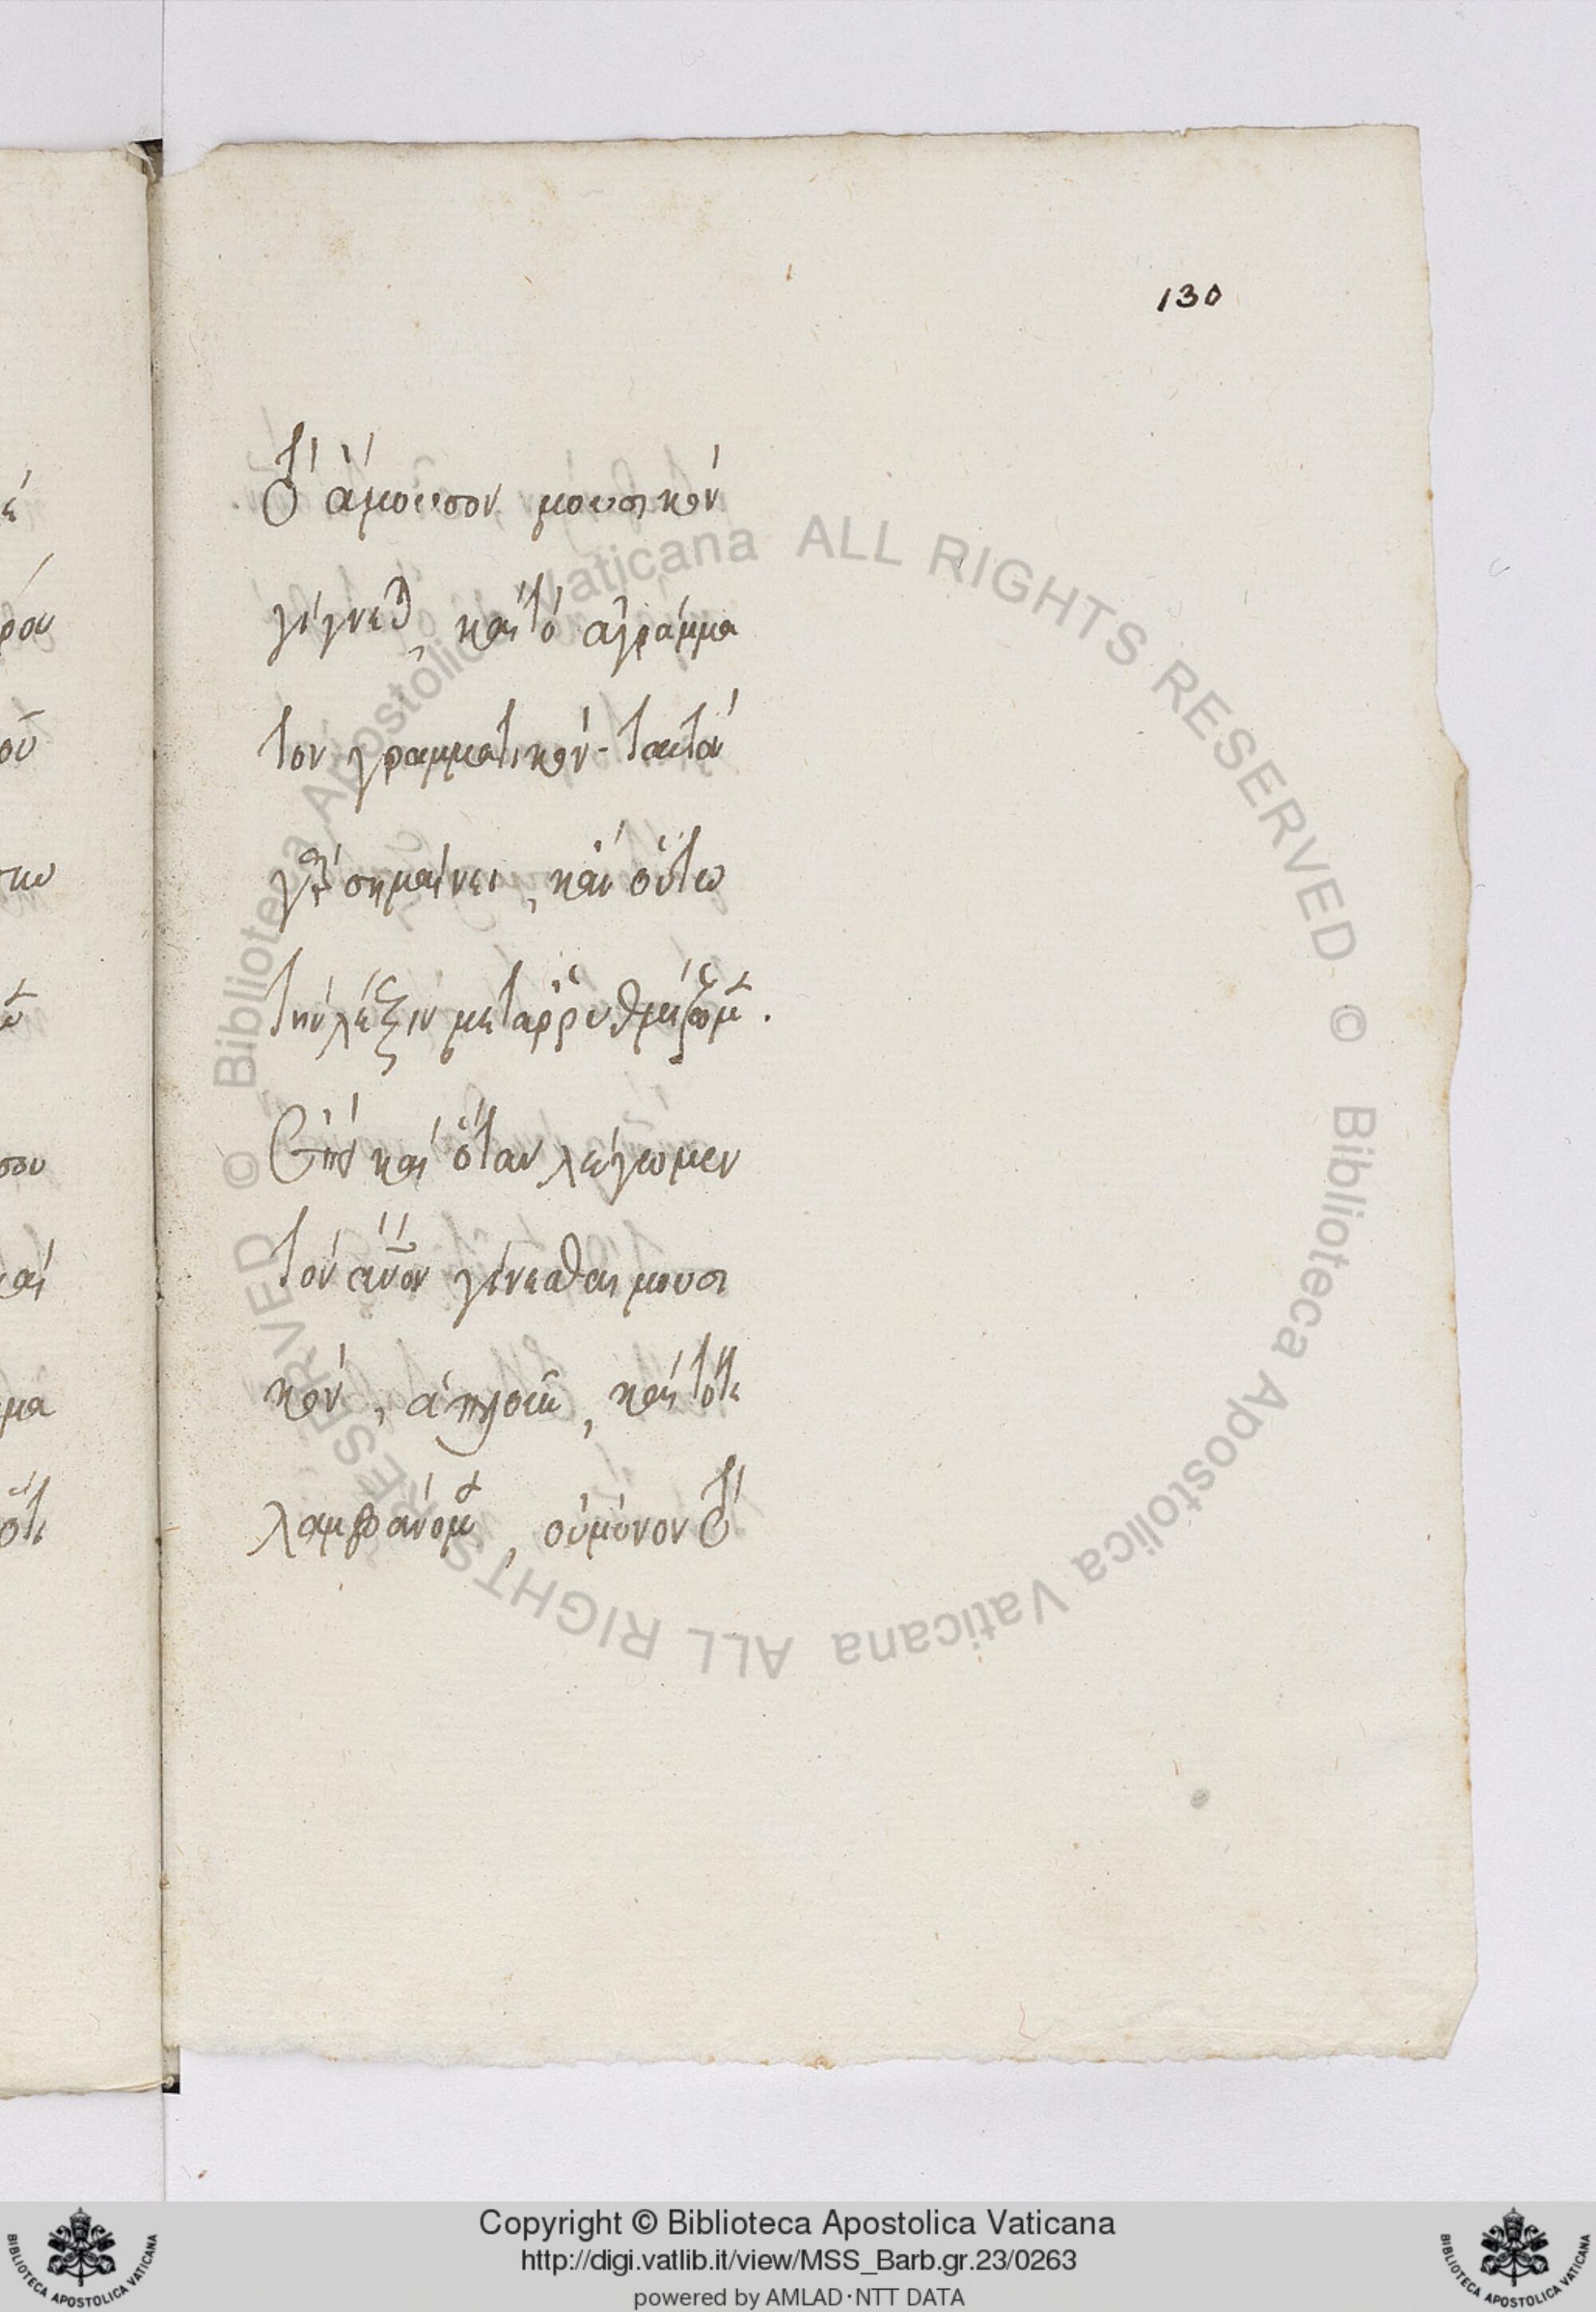 130
Τὸ ἄμουσον μουσικὸν
γίγνεται, καὶ τὸ ἀγράμμα
τον γραμματικόν· ταυτὸν
γὰρ σημαίνει, κἂν οὕτω
τὴν λέξιν μεταῤῥυθμίζωμεν.
καὶ ὅταν λέγωμεν
τὸν ἄνον γίνεσθαι μουσι
κὸν, ἁπλοῦν, καὶ τότε
λαμβάνομεν, οὐ μόνον τὸ
Biblioteca Apostolica Vaticana ALL RIGHTS RESERVED ©
Biblioteca Apostolica Vaticana ALL RIGHTS RESERVED ©
Copyright © Biblioteca Apostolica Vaticana
http://digi.vatlib.it/view/MSS_Barb.gr.23/0263
powered by AMLAD·NTT DATA
BIBLIOTECA APOSTOLICA VATICANA
BIBLIOTECA APOSTOLICA VATICANA